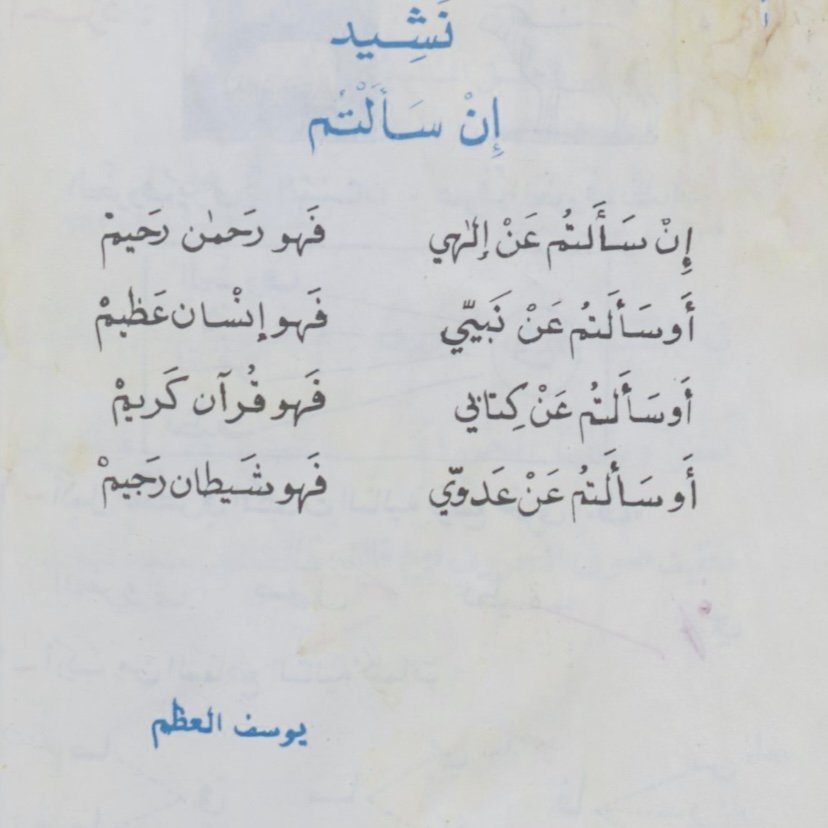 نَشِيد
إِنْ سَأَلْتُم
إِنْ سَأَلتُم عَنْ إلٰهي فَهو رَحمٰن رَحيمْ
أَو سَأَلتُم عَنْ نَبيّي فَهو إنْسان عَظيمْ
أَو سَأَلتُم عَنْ كِتابي فَهو قُرآن كَريمْ
أَو سَأَلتُم عَنْ عَدوّي فَهو شَيطان رَجيمْ
يوسف العظم